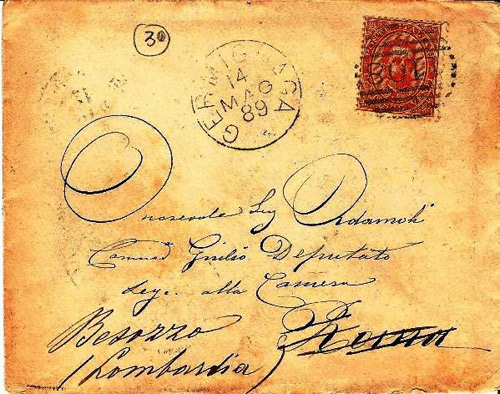 3
GERMIGNAGA
14
MAG
89
Onorevole Sig Adamoli
Giulio Deputato
alla Camera
Roma
Besozzo
(Lombardia)